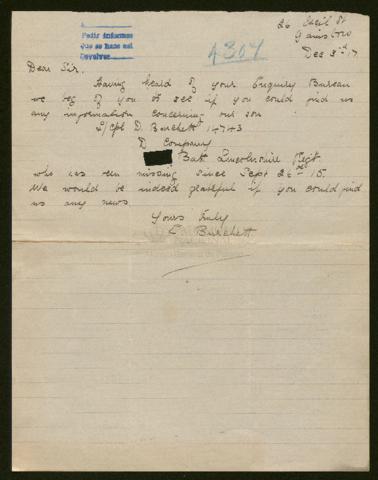 Pedir informes
que se hace así
Devolver
4307
26 Cecil St
Gainsboro
Dec 3rd 17
Dear Sir.
Having heard of your Enquiry Bureau
we beg of you to see if you could find us
any information concerning our son
L/Cpl D. Burchett 14743
D Company
Batt Lincolnshire Regt.
who has been missing since Sept 26th 15.
We would be indeed grateful if you could find
us any news.
Yours truly
C Burchett